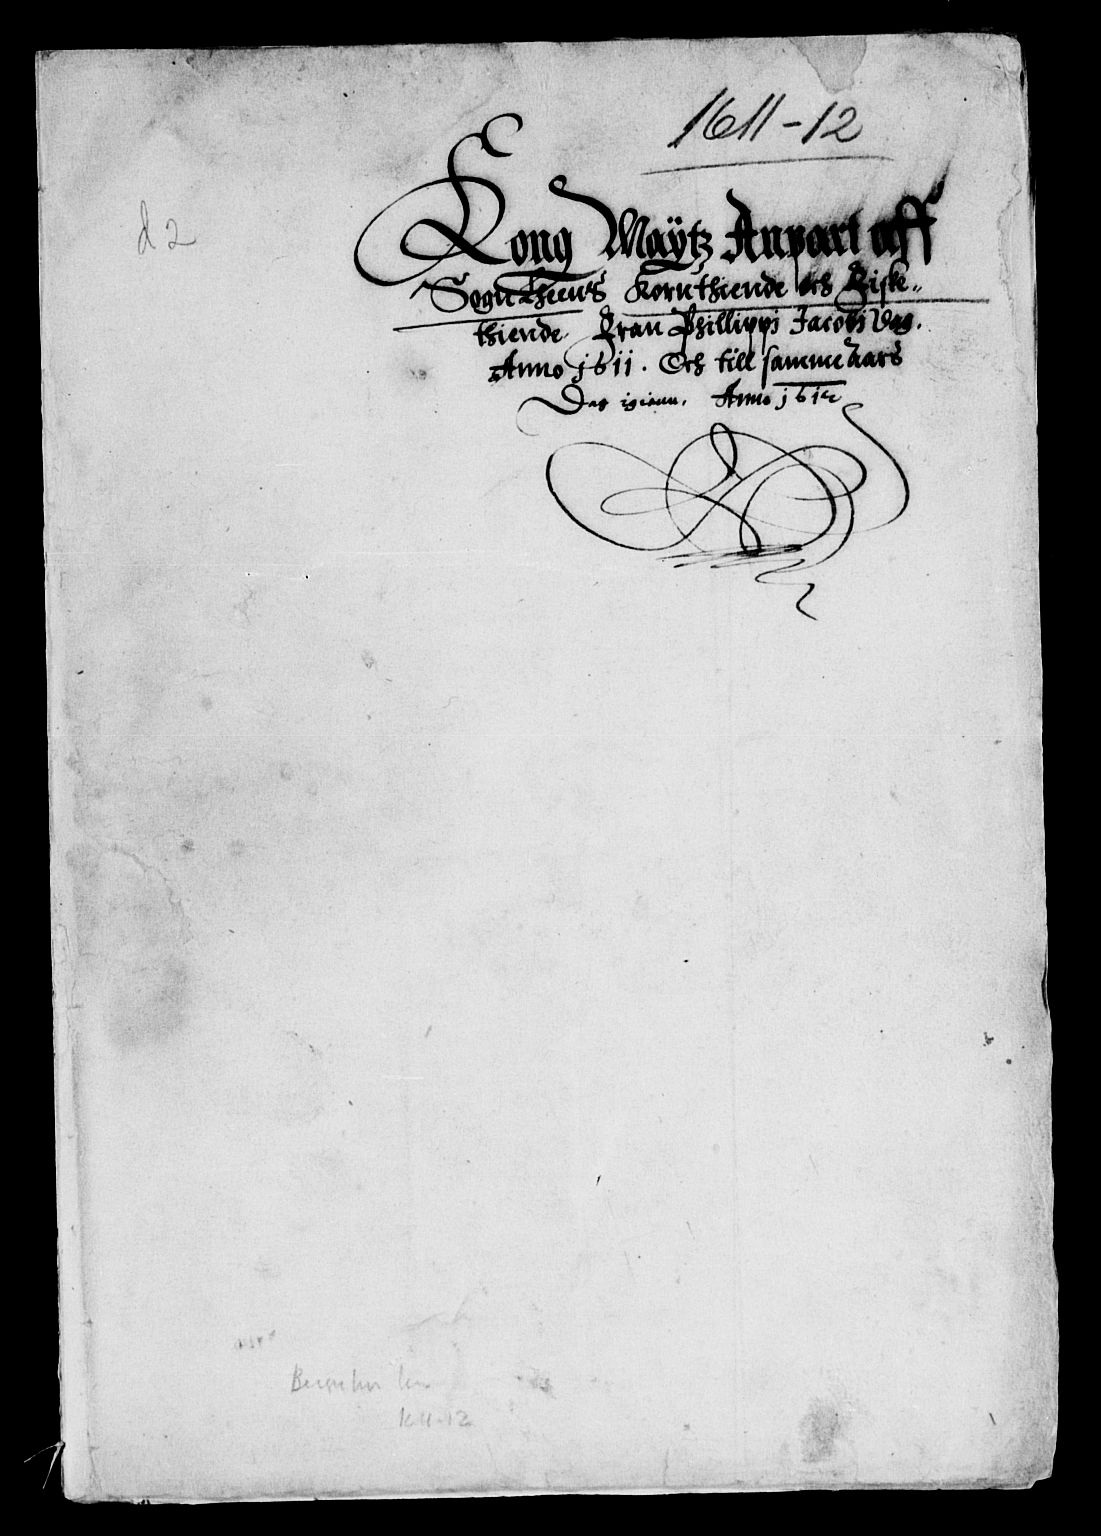 1611-12
d 2
Kong Maÿtz Anpart aff
Sogntheens Kornthiende och Fiske„
thiende. Fran Phillippi Jacobi Dag.
Anno 1611. Och till samme aars
Dag igienn. Anno 1612
Bergenhus len
1611-12